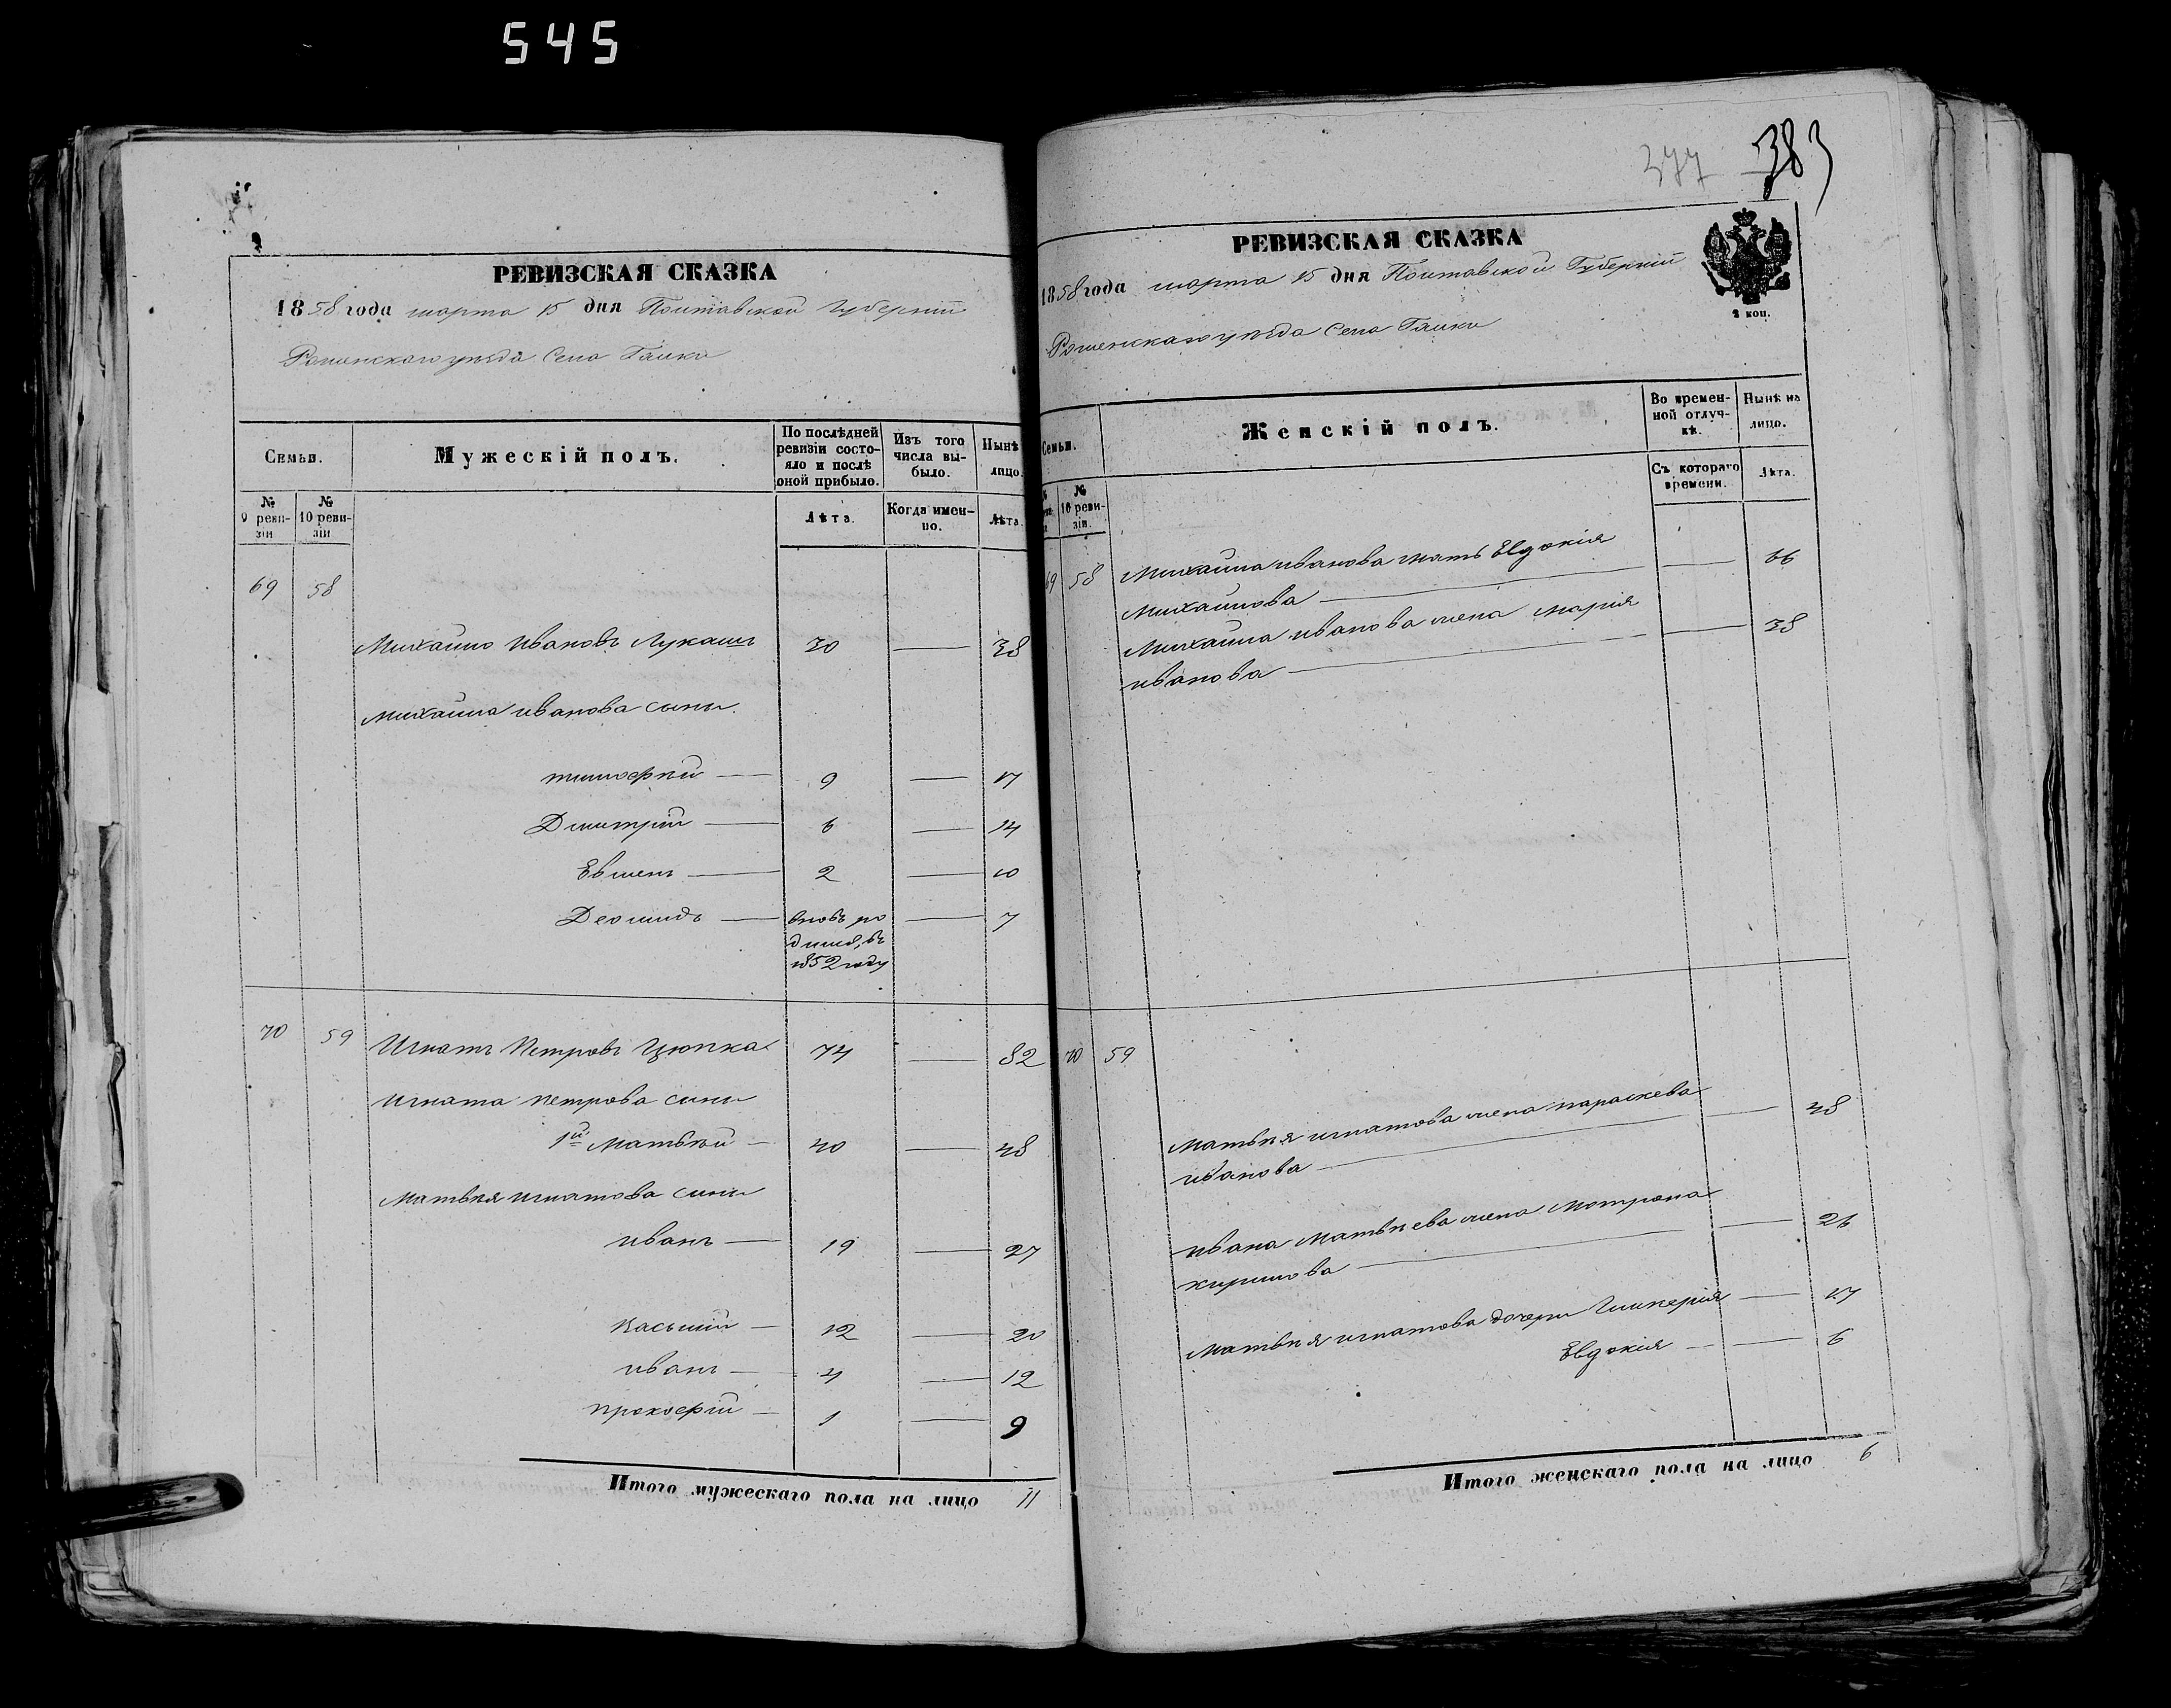 545
РЕВИЗСКАЯ СКАЗКА
1858 года марта 15 дня Полтавской Губерніи
Роменскаго уѣзда Села Галки
Семьи.
Мужескій полъ.
По послѣдней ревизіи состояло и послѣ оной прибыло.
Изъ того числа выбыло.
Нынѣ лицо.
№ 9 ревизіи
№ 10 ревизіи
Лѣта.
Когда именно.
Лѣта.
69 58
Михайло Ивановъ Лукашъ 30 — 38
Михайла Иванова сыны
тимофѣй — 9 — 17
Дмитрій — 6 — 14
Евменъ — 2 — 10
Деомидъ — вновь ро — 7
дился, въ
1852 году
70 59 Игнатъ Петровъ Цюпка 74 — 82
Игната петрова сыны
1й Матвѣй — 40 — 48
Матвѣя игнатова сыны
иванъ — 19 — 27
Касьянъ — 12 — 20
иванъ — 4 — 12
прокофій — 1 — 9
Итого мужескаго пола на лицо 11
377 383
РЕВИЗСКАЯ СКАЗКА
1858 года марта 15 дня Полтавской Губерніи
2 коп.
Роменскаго уѣзда Села Галки
Семьи.
Женскій полъ.
Во временной отлучкѣ.
Нынѣ на лицо.
№ 10 ревизіи.
Съ котораго времени.
Лѣта.
69 58 Михайла иванова мать Евдокія — 66
Михайлова —
Михайла иванова жена Марія — 38
иванова —
70 59
Матвѣя игнатова жена параскева — 48
иванова —
ивана Матвѣева жена Мотрона — 26
кирилова —
Матвѣя игнатова дочери Гликерія — 17
Евдокія — 6
Итого женскаго пола на лицо 6